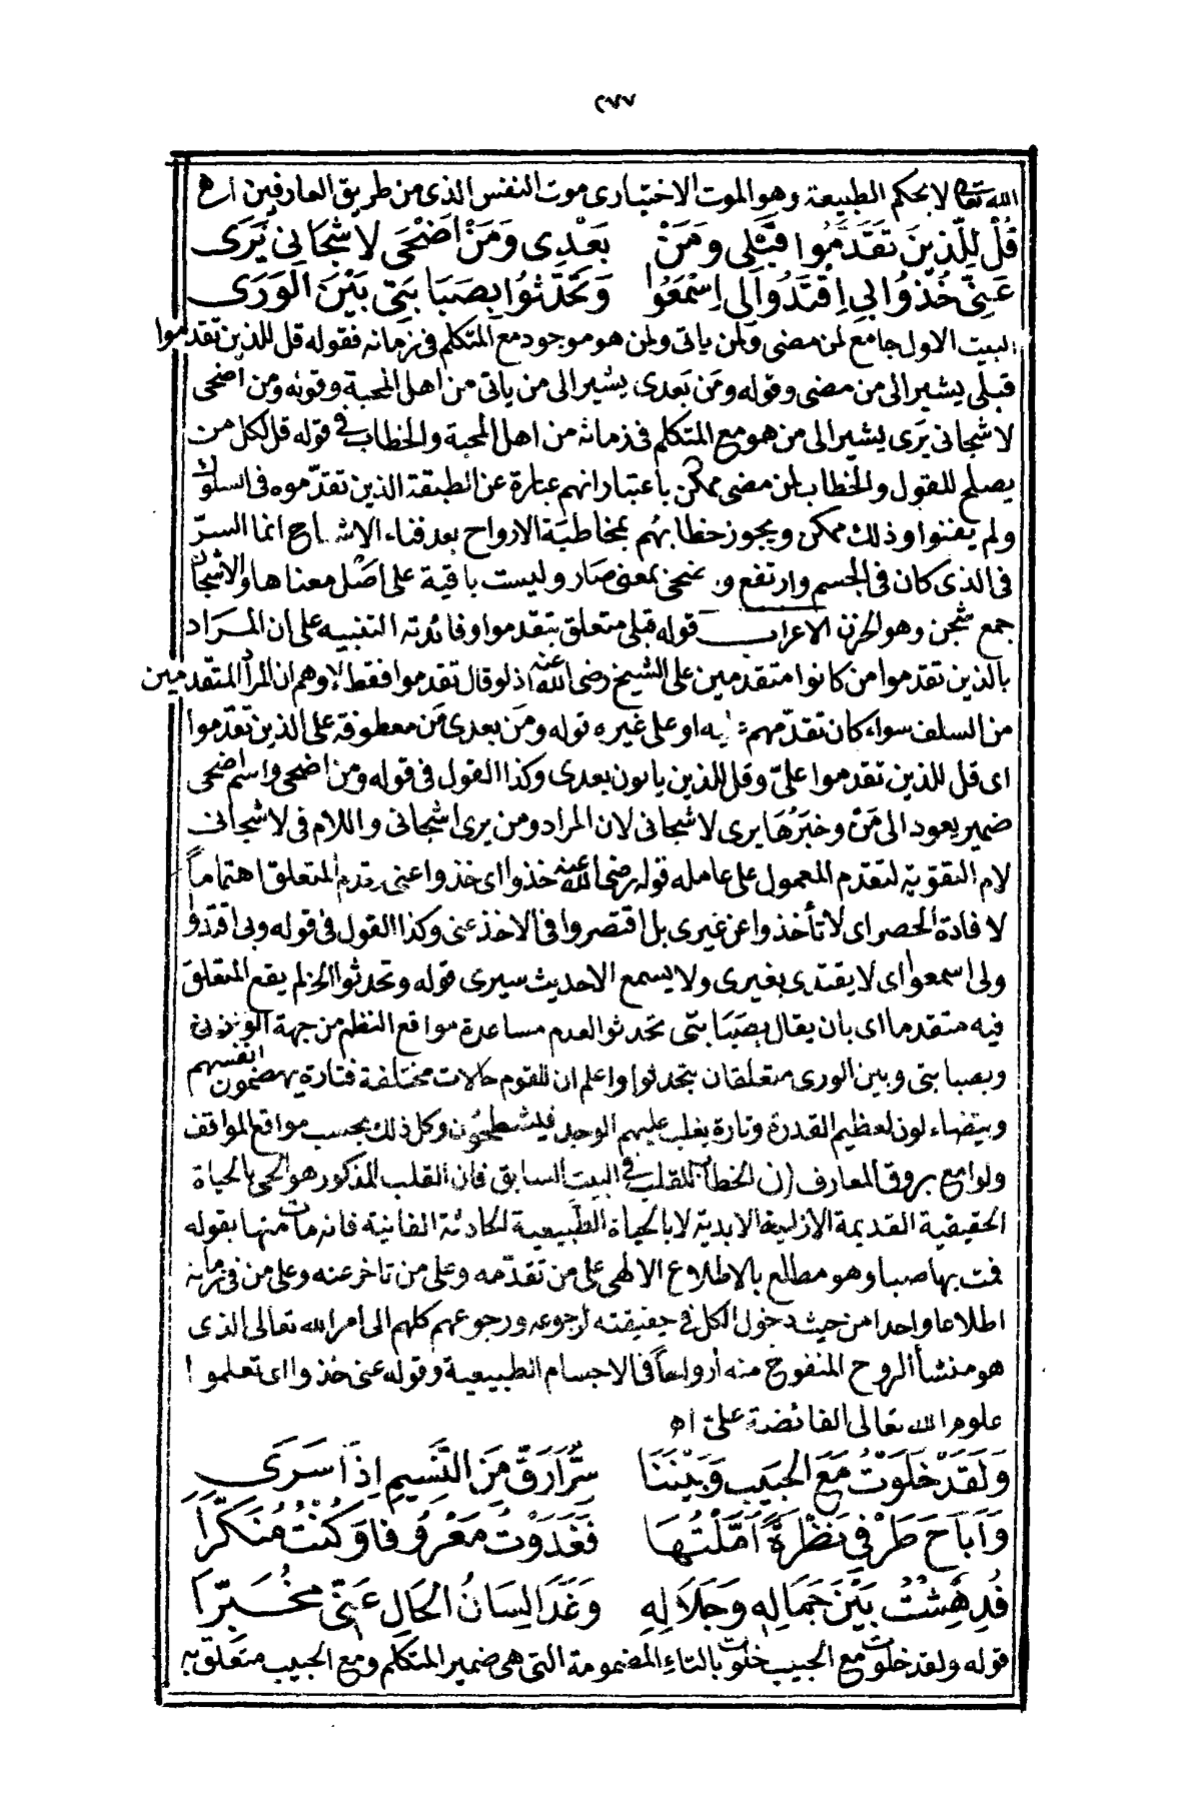 ٢٧٧
الله تعالى لا بحكم الطبيعة وهو الموت الاختيارى موت النفس الذى من طريق العارفين اه
قُلْ لِلَّذِينَ تَقَدَّمُوا قَبْلِى وَمَنْ بَعْدِى وَمَنْ اَضْحَى لاَشْجَانِى يَرَى
عَنِّى خُذُوا بِى اِقْتَدُوا لِى اِسْمَعُوا وَتَحَدَّثُوا بِصَبَابَتِى بَيْنَ الْوَرَى
البيت الاول جامع لمن مضى ولمن ياتى ولمن هو موجود مع المتكلم فى زمانه فقوله قل للذين تقدموا
قبلى يشير الى من مضى وقوله ومَن بَعدى يشير الى من ياتى من اهل المحبة وقوله ومن اضحى
لاشجانى يَرَى يشير الى من هو مع المتكلم فى زمانه من اهل المحبة والخطاب فى قوله قل لكل من
يصلح للقول والخطاب لمن مضى ممكن باعتبار انهم عبارة عن الطبقة الذين تقدّموه فى السلوك
ولم يفنوا وذلك ممكن ويجوز خطابهُم بمخاطبَة الارواح بعد فناء الاشباح انما السرّ
فى الذى كان فى الجسم وارتفع و. ضحى بمعنى صار وليست باقية على اصْل معناها والاشجان
جمع شجن وهو الحزن الاعراب قوله قبلى متعلق بتقدموا وفائدته التنبيه على ان المراد
بالذين تقدموا من كانوا متقدمين على الشيخ رضى الله عنه اذ لو قال تقدموا فقط لاوهم ان المراد المتقدمين
من السلف سواء كان تقدّمهم عليه او على غيره قوله ومَن بعدى مَن معطوفة على الذين تقدّموا
اى قل للذين تقدموا علىّ وقل للذين ياتون بعدى وكذا القول فى قوله ومن اضحى واسم اضحى
ضمير يعود الى مَنْ وخبَرُهَا يرى لاشجانى لان المراد ومن يرى اشجانى واللام فى لاشجانى
لام التقوية لتقدم المعمول على عامله قوله رضى الله عنه خذوا اى خذوا عنى قدم المتعلق اهتماماً
لافادة الحصر اى لا تأخذوا عن غيرى بل اقتصروا فى الاخذ عنى وكذا القول فى قوله وبى اقتدوا
ولى اسمعوا اى لا يقتدى بغيرى ولا يسمع الا حديث سيرى قوله وتحدثوا الخ لم يقع المتعلق
فيه متقدما اى بان يقال بصَبَابتى تحدثوا لعدم مساعدة مواقع النظم من جهة الوزن
وبصبابتى وبين الورى متعلقان بتحدثوا واعلم ان للقوم حالات مختلفة فتارة يهضمون انفسهم
ويتضاءلون لعظيم القدرة وتارة يغلب عليهم الوجد فيشطحون وكل ذلك بحسب مواقع المواقف
ولوامع بروق المعارف ان الخطاب للقلب فى البيت السابق فان القلب المذكور هو الحى بالحياة
الحقيقية القديمة الازلية الابدية لا بالحياة الطّبيعية الحادثة الفانية فانه مات منها بقوله
فمت بها صبا وهو مطالع بالاطلاع الالهى على من تقدّمه وعلى من تاخر عنه وعلى من فى زمانه
اطلاعا واحدا من حيث دخول الكل فى حقيقته لرجوعه ورجوعهم كلهم الى امر الله تعالى الذى
هو منشأ الروح المنفوخ منه أرواحاً فى الاجسام الطبيعية وقوله عنى خذوا اى تعلموا
علوم الله تعالى الفائضة علىّ اه
وَلَقَدْ خَلَوْتُ مَعَ الْحَبِيبِ وَبَيْنَنَا سِرٌّ اَرَقّ مِنَ النَّسِيمِ اِذَا سَرَى
وَاَبَاحَ طَرْفِى نَظْرَةً اَمَّلْتُهَا فَغَدَوْتُ مَعْرُوفا وَكُنْتُ مُنَكَّرَا
فَدُهِشْتُ بَيْنَ جَمَالِهِ وَجَلَالِهِ وَغَدَا لِسَانُ الْحَالِ عَنِّى مُخْبِرَا
قوله ولقد خلوت مع الحبيب خلوت بالتاءِ المضمومة التى هى ضمير المتكلم ومع الحبيب متعلّق به